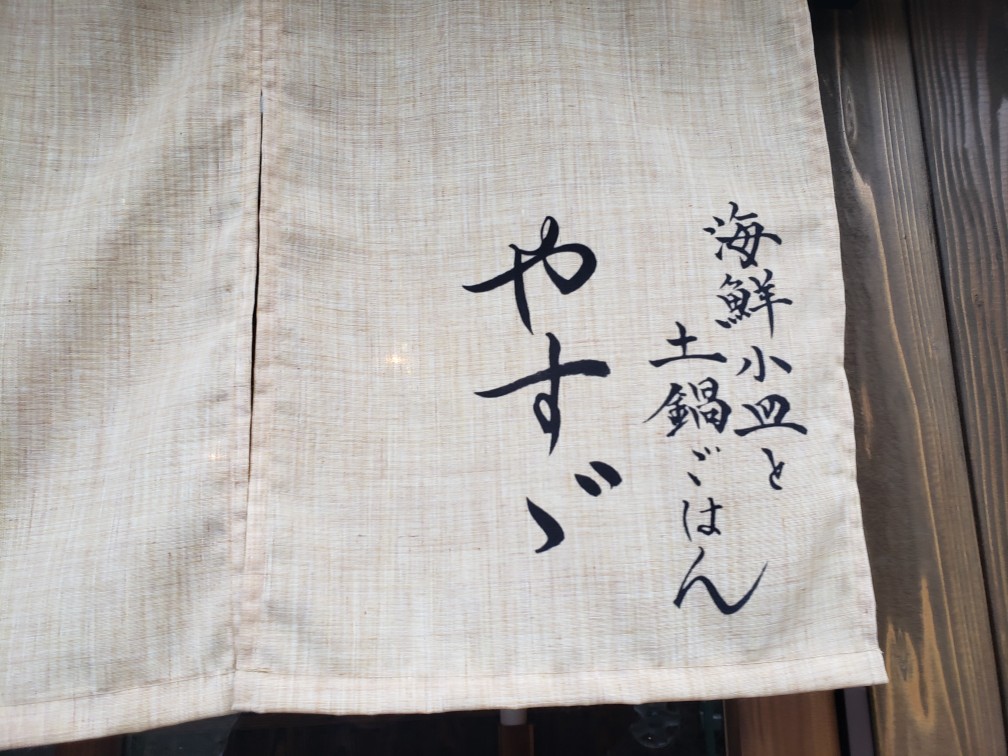 海鮮小皿と
土鍋ごはん
やすゞ